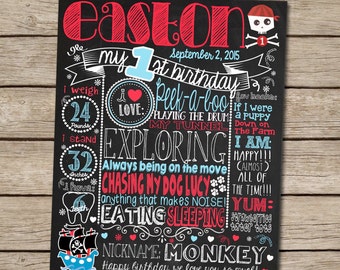 EASTON
1
September 2, 2015
my 1st birthday
I weigh
24
Pounds
I stand
32
Inches
6
I ♥ LOVE:
Peek-a-boo
PLAYING THE DRUM
MY TUNNEL
EXPLORING
Always being on the move
CHASING MY DOG LUCY
anything that makes NOISE!
EATING SLEEPING
If I were
a puppy
Down On
The Farm
I AM:
HAPPY!!!
(ALMOST)
ALL OF
THE TIME!!!
YUM:
NICKNAME: MONKEY
Happy birthday